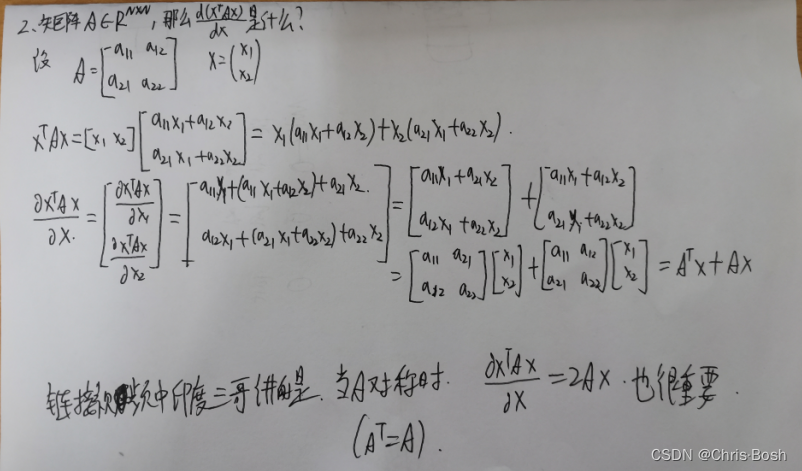 2、矩阵 A∈R^{N×N}, 那么 d(xᵀAx)/dx 是什么?
设 A=[a₁₁ a₁₂; a₂₁ a₂₂] X=(x₁; x₂)
xᵀAx=[x₁ x₂][a₁₁x₁+a₁₂x₂; a₂₁x₁+a₂₂x₂]= x₁(a₁₁x₁+a₁₂x₂)+x₂(a₂₁x₁+a₂₂x₂).
∂xᵀAx/∂x.=[∂xᵀAx/∂x₁; ∂xᵀAx/∂x₂]=[a₁₁x₁+(a₁₁x₁+a₁₂x₂)+a₂₁x₂.; a₁₂x₁+(a₂₁x₁+a₂₂x₂)+a₂₂x₂]=[a₁₁x₁+a₂₁x₂; a₁₂x₁+a₂₂x₂]+[a₁₁x₁+a₁₂x₂; a₂₁x₁+a₂₂x₂]
=[a₁₁ a₂₁; a₁₂ a₂₂][x₁; x₂]+[a₁₁ a₁₂; a₂₁ a₂₂][x₁; x₂]=Aᵀx+Ax
链接 频中印度三哥讲的是. 当A对称时. ∂xᵀAx/∂x=2Ax. 也很重要.
(Aᵀ=A).
CSDN @Chris·Bosh